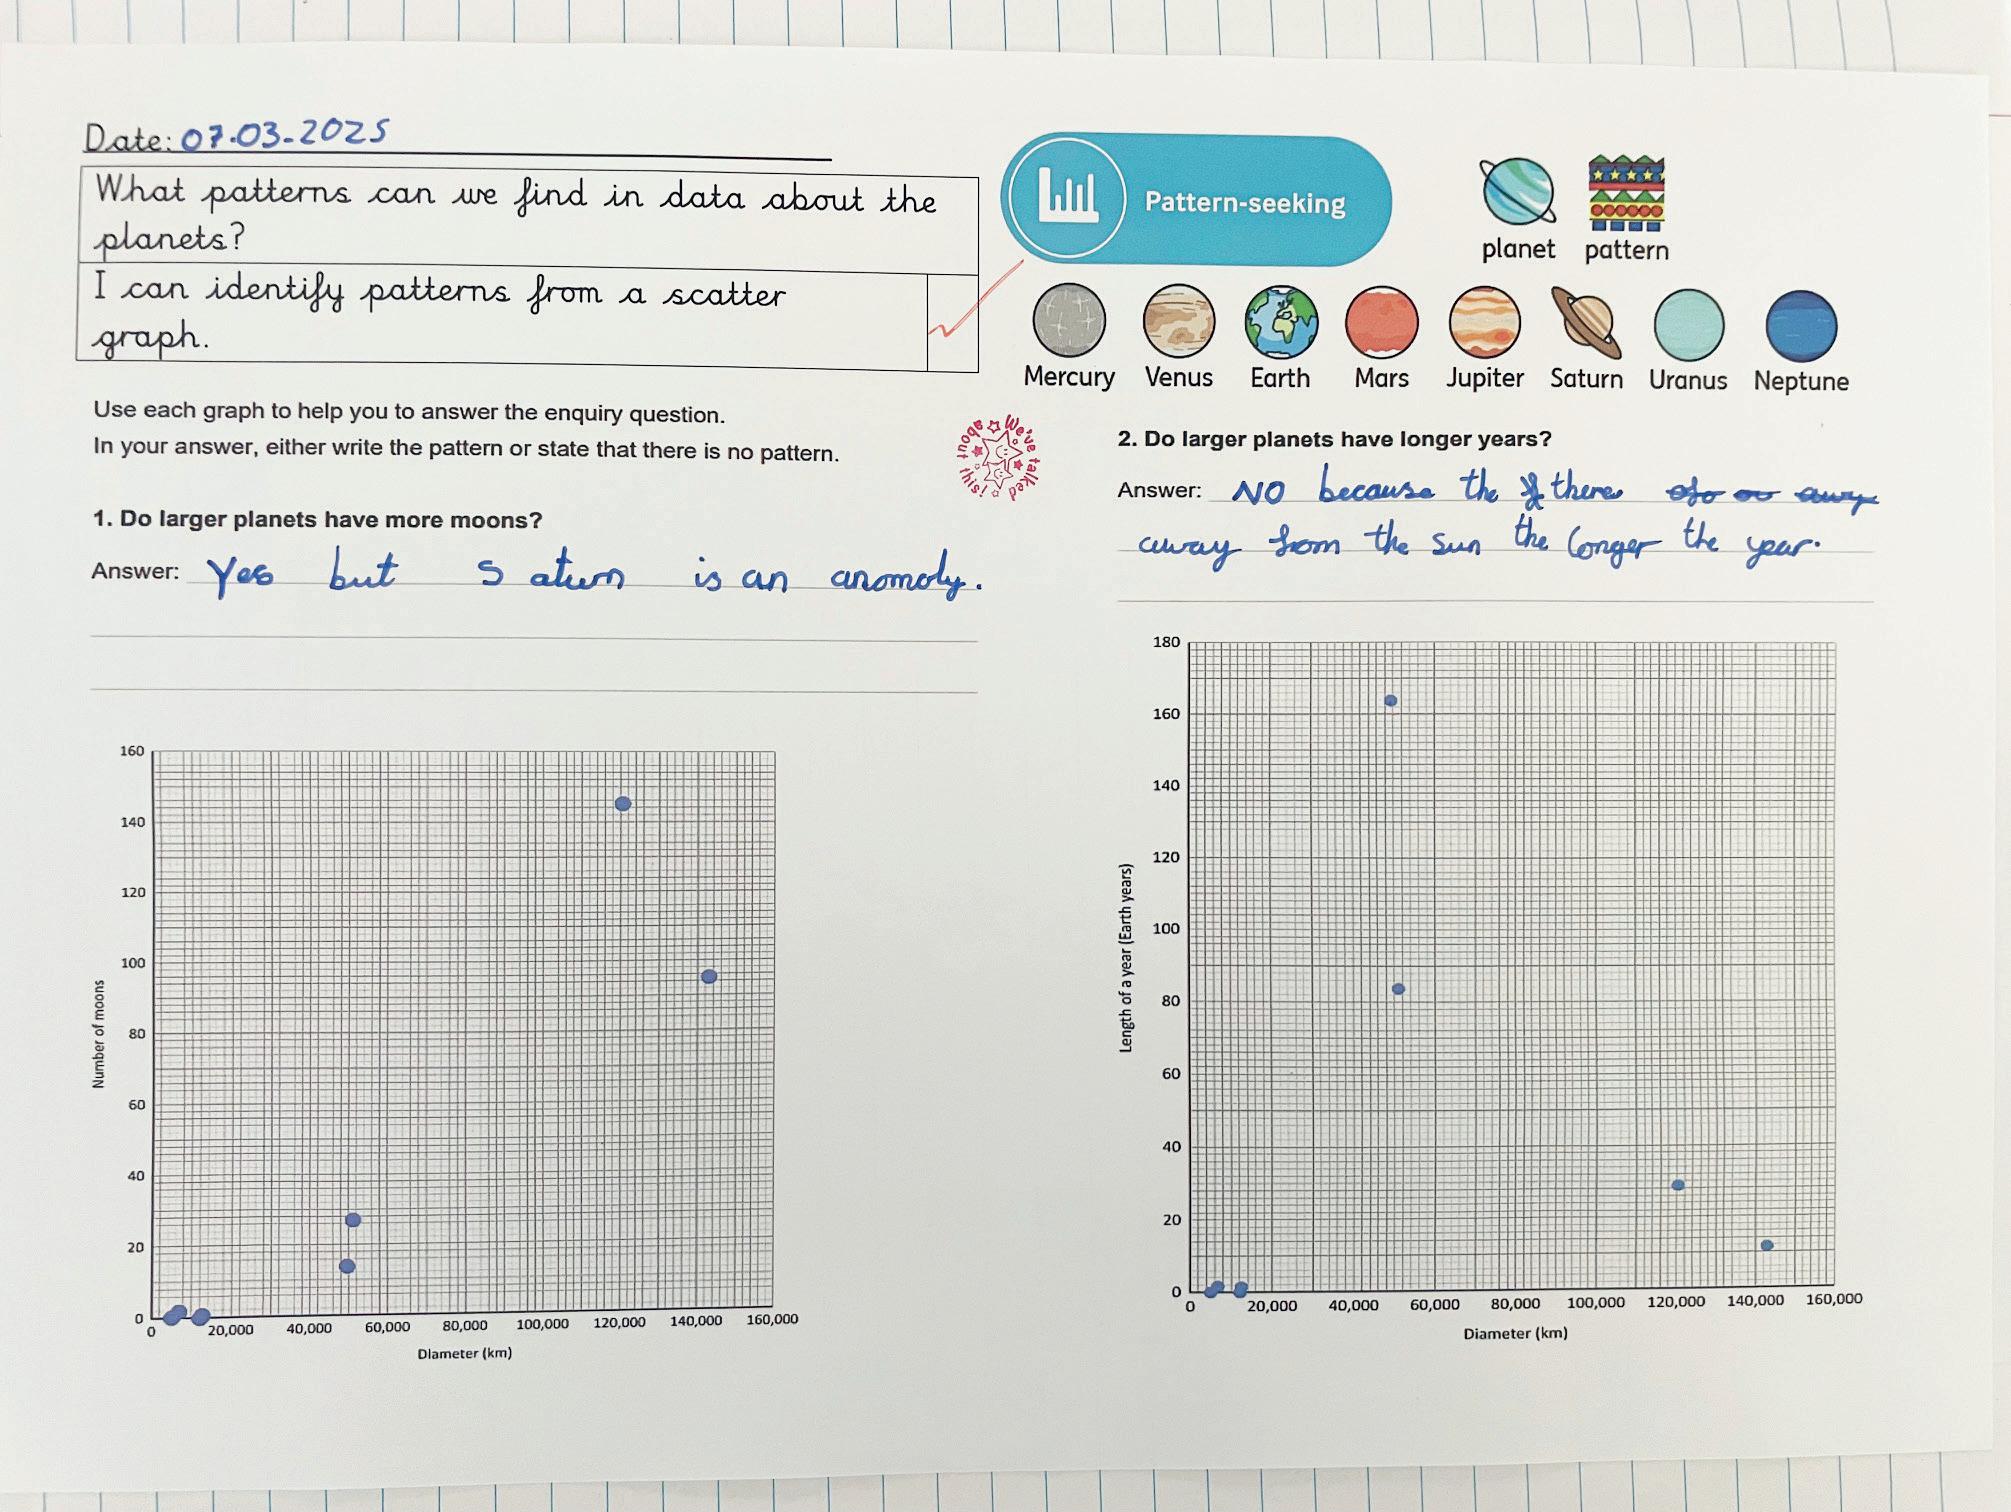 Date: 07.03-2025
What patterns can we find in data about the
planets?
I can identify patterns from a scatter
graph.
Pattern-seeking
planet pattern
Mercury Venus Earth Mars Jupiter Saturn Uranus Neptune
Use each graph to help you to answer the enquiry question.
In your answer, either write the pattern or state that there is no pattern.
We've talked about this!
1. Do larger planets have more moons?
Answer: Yes but Saturn is an anomoly.
160
140
120
100
80
60
40
20
0
Number of moons
0 20,000 40,000 60,000 80,000 100,000 120,000 140,000 160,000
Diameter (km)
2. Do larger planets have longer years?
Answer: NO because the there
away from the sun the longer the year.
180
160
140
120
100
80
60
40
20
0
Length of a year (Earth years)
0 20,000 40,000 60,000 80,000 100,000 120,000 140,000 160,000
Diameter (km)